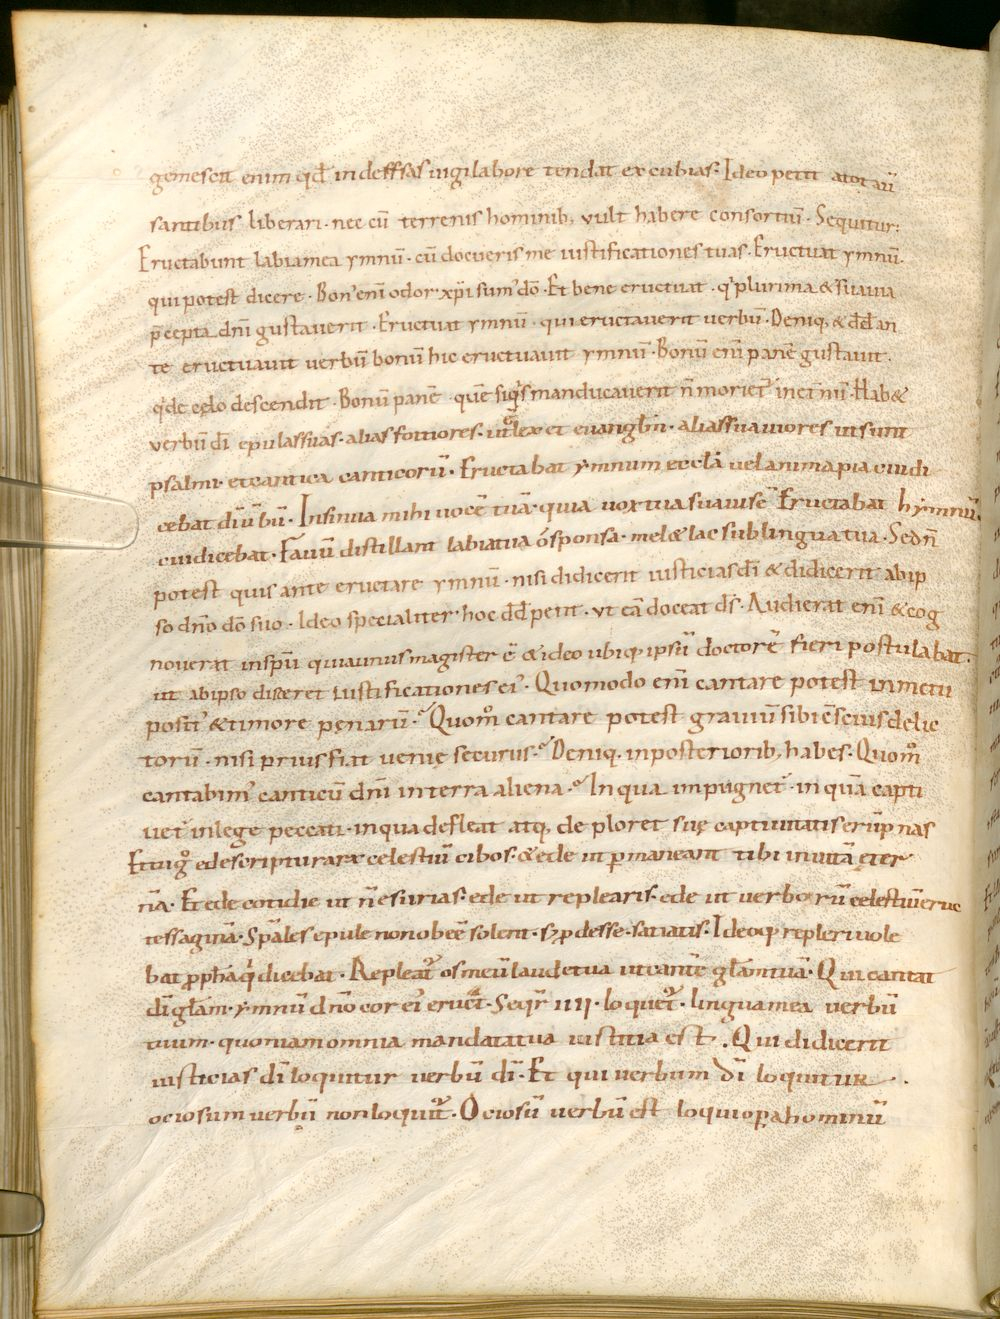 gemescit enim qđ indeffsas uigilabore tendat excubias. Ideo petit atotaū
santibus liberari. nec cū terrenis hominib; vult habere consortiū. Sequitur:
Eructabunt labiamea ymnū. cū docueris me iustificationes tuas. Eructuat ymnū.
qui potest dicere. Bon' eni odor xp̄i sum' dō. Et bene eructuat. q' plurima & suauia
p̄cepta dn̄i gustauerit. Eructuat ymnū qui eructauerit verbū. Deniq; & dđ an
te eructuauit verbū bonū hic eructuauit ymnū. Bonū eni panē gustauit.
q'de cęlo descendit. Bonū panē quē siq's manducauerit n̄ moriet' inet'nū. Hab&
verbū dī epulas suas. alias fortiores. ut lex et euangl̄iū. alias suauiores ut sunt
psalmi. et cantica canticorū. Eructabat ymnum eccl̄a uel anima pia cui di
cebat dī ubū. Insinua mihi uocē tuā. quia uox tua suauis ē Eructabat hymnū.
cui dicebat. Fauū distillant labia tua ó sponsa. mel & lac sub lingua tua. Sed n̄
potest quis ante eructare ymnū. nisi didicerit iusticias dī & didicerit abip
so dn̄o dō suo. Ideo specialiter hoc dđ petit. vt eā doceat ds̄. Audierat eni & cog
nouerat insp̄u quia unus magister ē & ideo ubiq; ipsū doctorē fieri postulabat.
ut abipso disceret iustificationes ei'. Quomodo eni cantare potest inmetu
posit' & timore penarū. Quom̊ cantare potest grauiū sibi ēscius delic
torū. nisi prius fiat venię securus. Deniq. inposteriorib; habes. Quom̊
cantabim' canticū dn̄i interra aliena. In qua impugnet'. in quā capti
uet' inlege peccati. inqua defleat atq; de ploret suę captiuitatis erūp nas
Et uig̊ ede scripturarꝝ celestiū cibos. & ede ut p̱maneant tibi inuitā ęter
nā. Et ede cotidie ut n̄ esurias. ede ut replearis. ede ut verborū celestiū eruc
tes saginā. Sp̄ales epule non obeē solent. s; ꝓdesse. satiatis. Ideoq; repleri uole
bat ꝓph̄a q' dicebat. Repleat' os meū laude tua ut cantē gl̄am tuā. Qui cantat
dī gl̄am. ymnū dn̄o cor ei' eruct'. Seqr̄ IIII. loquet'. lingua mea verbū
tuum. quoniam omnia mandata tua iustitia est. Qui didicerit
iusticias dī loquitur verbū dī. Et qui verbum dī loquitur.
ociosum verbū non loquit'. Ociosū verbū est loqui oꝑa hominū